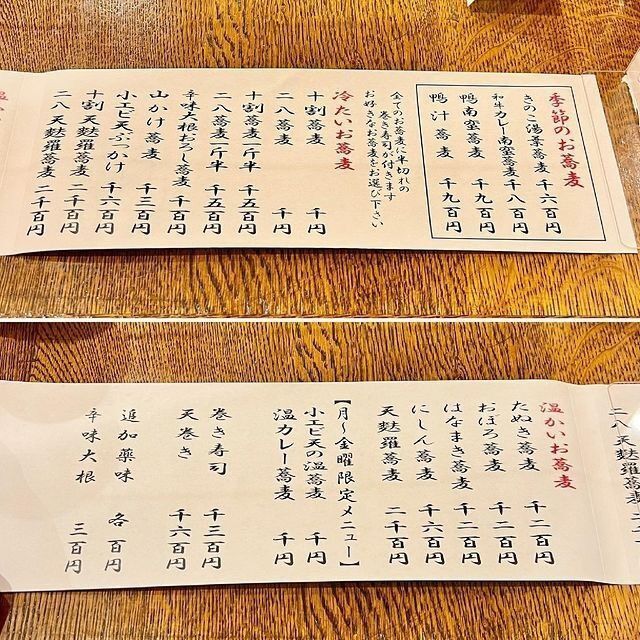 季節のお蕎麦
きのこ湯葉蕎麦 千六百円
和牛カレー南蛮蕎麦 千八百円
鴨南蛮蕎麦 千九百円
鴨汁蕎麦 千九百円
全てのお蕎麦に半切れの
巻き寿司が付きます
お好きなお蕎麦をお選び下さい
冷たいお蕎麦
十割蕎麦 千円
二八蕎麦 千円
十割蕎麦一斤半 千五百円
二八蕎麦一斤半 千五百円
辛味大根おろし蕎麦 千百円
山かけ蕎麦 千三百円
小エビ天ぶっかけ 千百円
十割天麩羅蕎麦 二千百円
二八天麩羅蕎麦 二千百円
二八天麩羅蕎麦
温かいお蕎麦
たぬき蕎麦 千二百円
おぼろ蕎麦 千二百円
はなまき蕎麦 千二百円
にしん蕎麦 千六百円
天麩羅蕎麦 二千百円
【月〜金曜限定メニュー】
小エビ天の温蕎麦 千円
温カレー蕎麦 千円
巻き寿司 千三百円
天巻き 千六百円
追加薬味 各百円
辛味大根 三百円